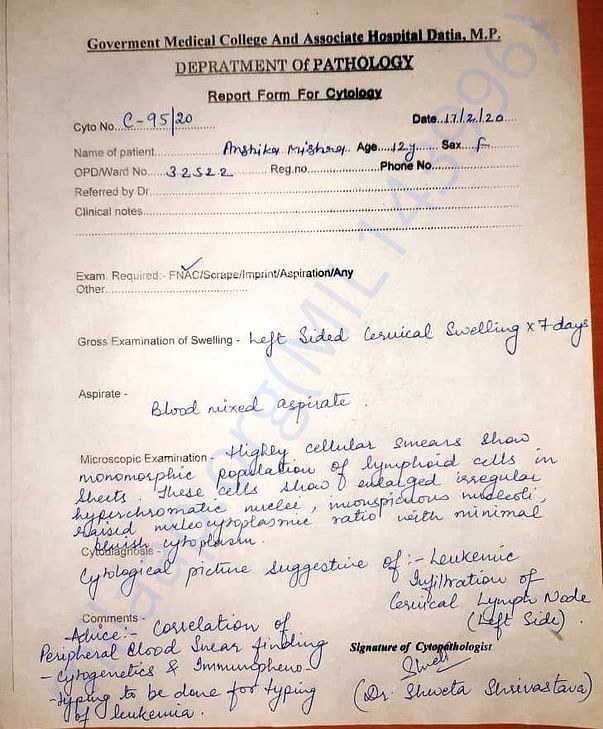 Goverment Medical College And Associate Hospital Datia, M.P.
DEPRATMENT Of PATHOLOGY
Report Form For Cytology
Cyto No. C-95/20 Date. 17/2/20
Name of patient Anshika Mishra Age 12y Sax f
OPD/Ward No. 32522 Reg.no. Phone No.
Referred by Dr.
Clinical notes
Exam. Required:- FNAC/Scrape/Imprint/Aspiration/Any
Other
Gross Examination of Swelling - Left Sided Cervical Swelling x 7 days
Aspirate -
Blood mixed aspirate.
Microscopic Examination - Highly cellular smears show
monomorphic population of lymphoid cells in
sheets. These cells show enlarged irregular
hyperchromatic nuclei, inconspicuous nucleoli,
raised nucleocytoplasmic ratio with minimal
bluish cytoplasm.
Cytodiagnosis -
Cytological picture suggestive of:- Leukemic
Infiltration of
Cervical Lymph Node
(Left Side).
Comments -
Advice:- Correlation of
Peripheral Blood Smear finding
- Cytogenetics & Immunopheno-
-typing to be done for typing
of leukemia.
Signature of Cytopathologist
Shweti
(Dr. Shweta Shrivastava)